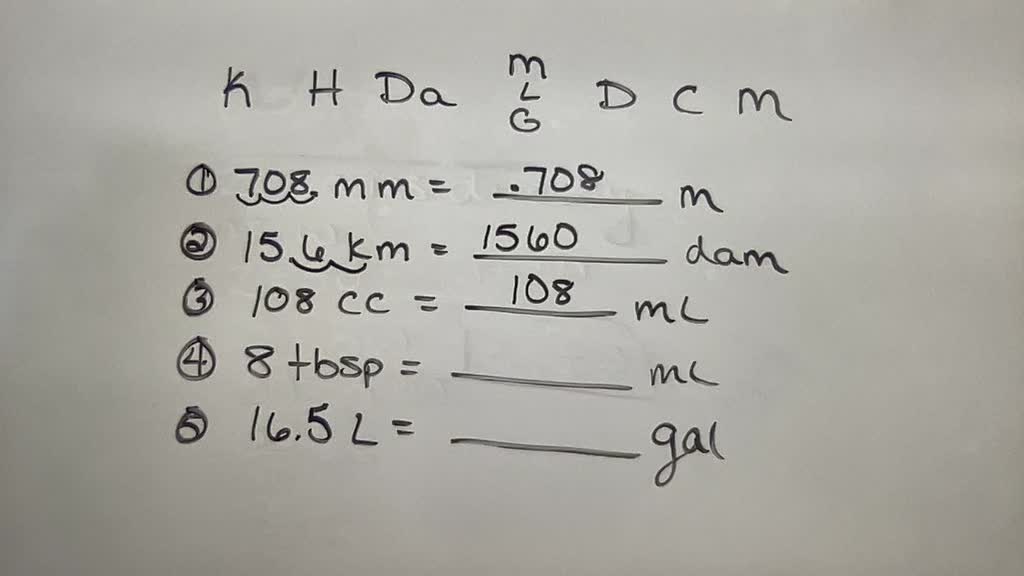 K H Da m D C m
L
G
① 708. mm = .708 m
② 15.6 km = 1560 dam
③ 108 cc = 108 mL
④ 8 tbsp = ____ mL
⑤ 16.5 L = ____ gal